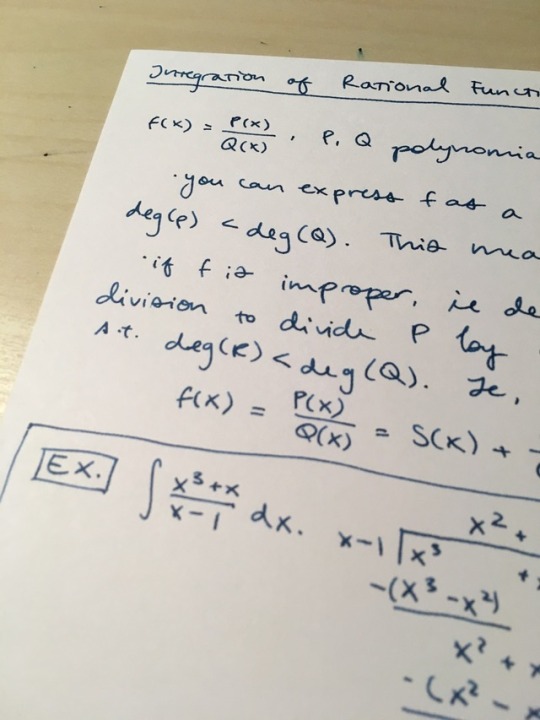 Integration of Rational Functi
f(x) = P(x)/Q(x), P, Q polynomia
· you can express f as a
deg(P) < deg(Q). This mea
· if f is improper, ie de
division to divide P by
s.t. deg(R) < deg(Q). Ie,
f(x) = P(x)/Q(x) = S(x) +
Ex. ∫ x³+x / x-1 dx.
x² +
x-1 | x³ +
-(x³ - x²)
x² + x
-(x² - x